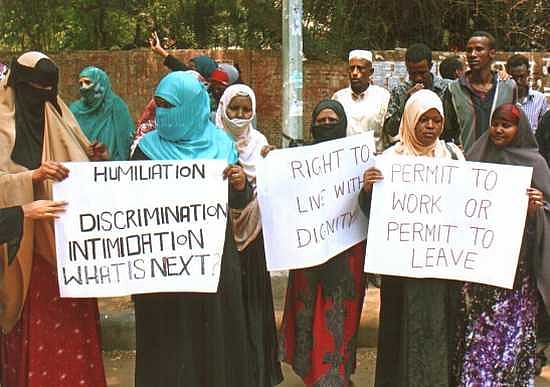 HUMILIATION
DISCRIMINATION
INTIMIDATION
WHAT IS NEXT?
RIGHT TO
LIVE WITH
DIGNITY
PERMIT TO
WORK OR
PERMIT TO
LEAVE